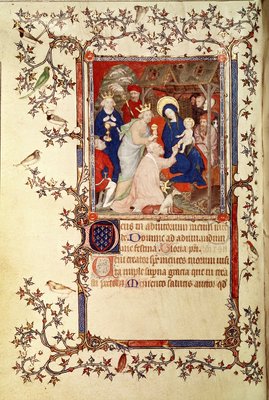 Deus in adiutorium meum inten
de Domine ad adiuuandum
me festina Gloria pri
Veni creator sp̄c mentes tuorum uisi
ta imple superna gracia que tu crea
sti pectora Memento salutis auctor qd